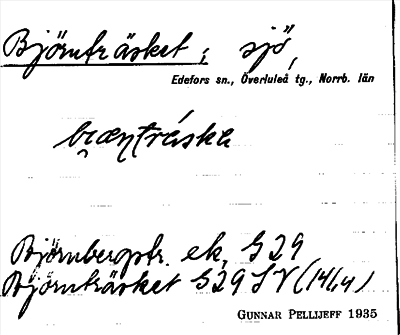 Björnträsket; sjö,
Edefors sn., Överluleå tg., Norrb. län
Björnbergstr. ek. G 29
Björnträsket G 29 SV (14/4)
GUNNAR PELLIJEFF 1935